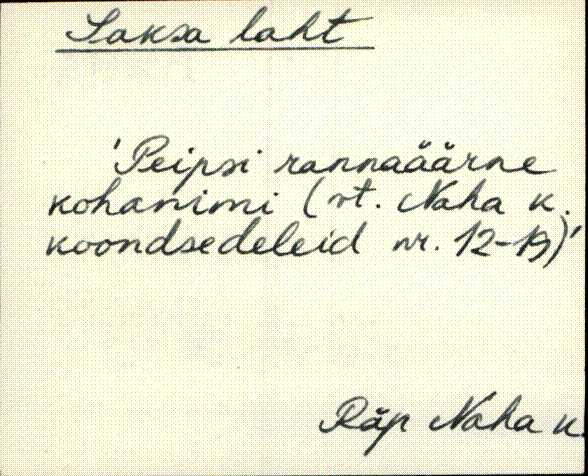 Saksa laht
'Peipsi rannaäärne
kohanimi (vt. Naha k.
koondsedeleid nr. 12-19)'
Räp Naha k.